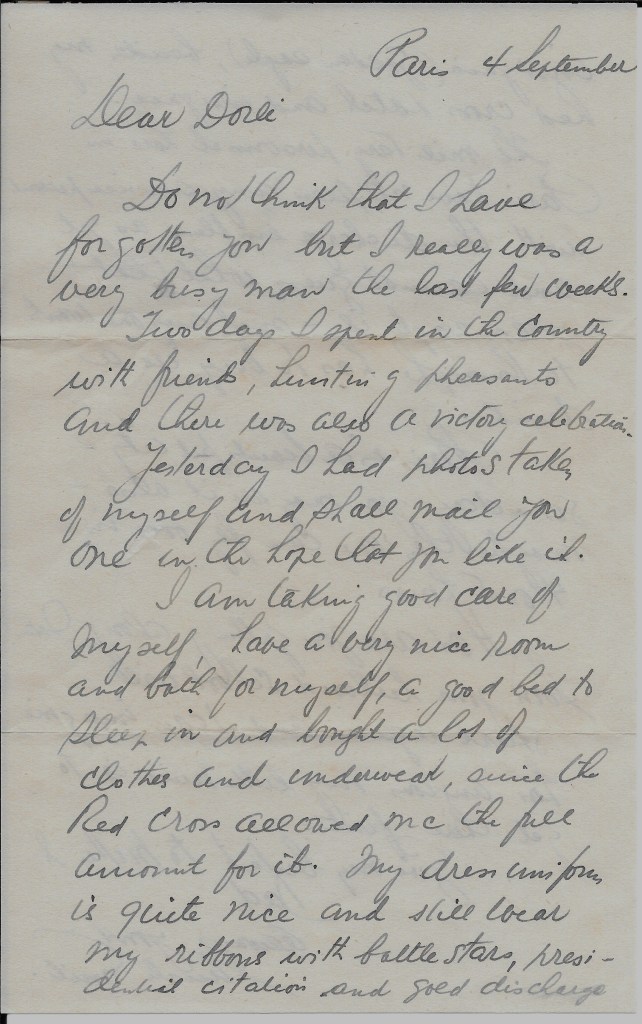 Paris 4 September
Dear Dorli
Do not think that I have
forgotten you but I really was a
very busy man the last few weeks.
Two days I spent in the country
with friends, hunting pheasants
and there was also a victory celebration.
Yesterday I had photos taken
of myself and shall mail you
one in the hope that you like it.
I am taking good care of
myself, have a very nice room
and bath for myself, a good bed to
sleep in and bought a lot of
clothes and underwear, since the
Red Cross allowed me the full
amount for it. My dress uniform
is quite nice and still wear
my ribbons with battle stars, presi-
dential citation and gold discharge